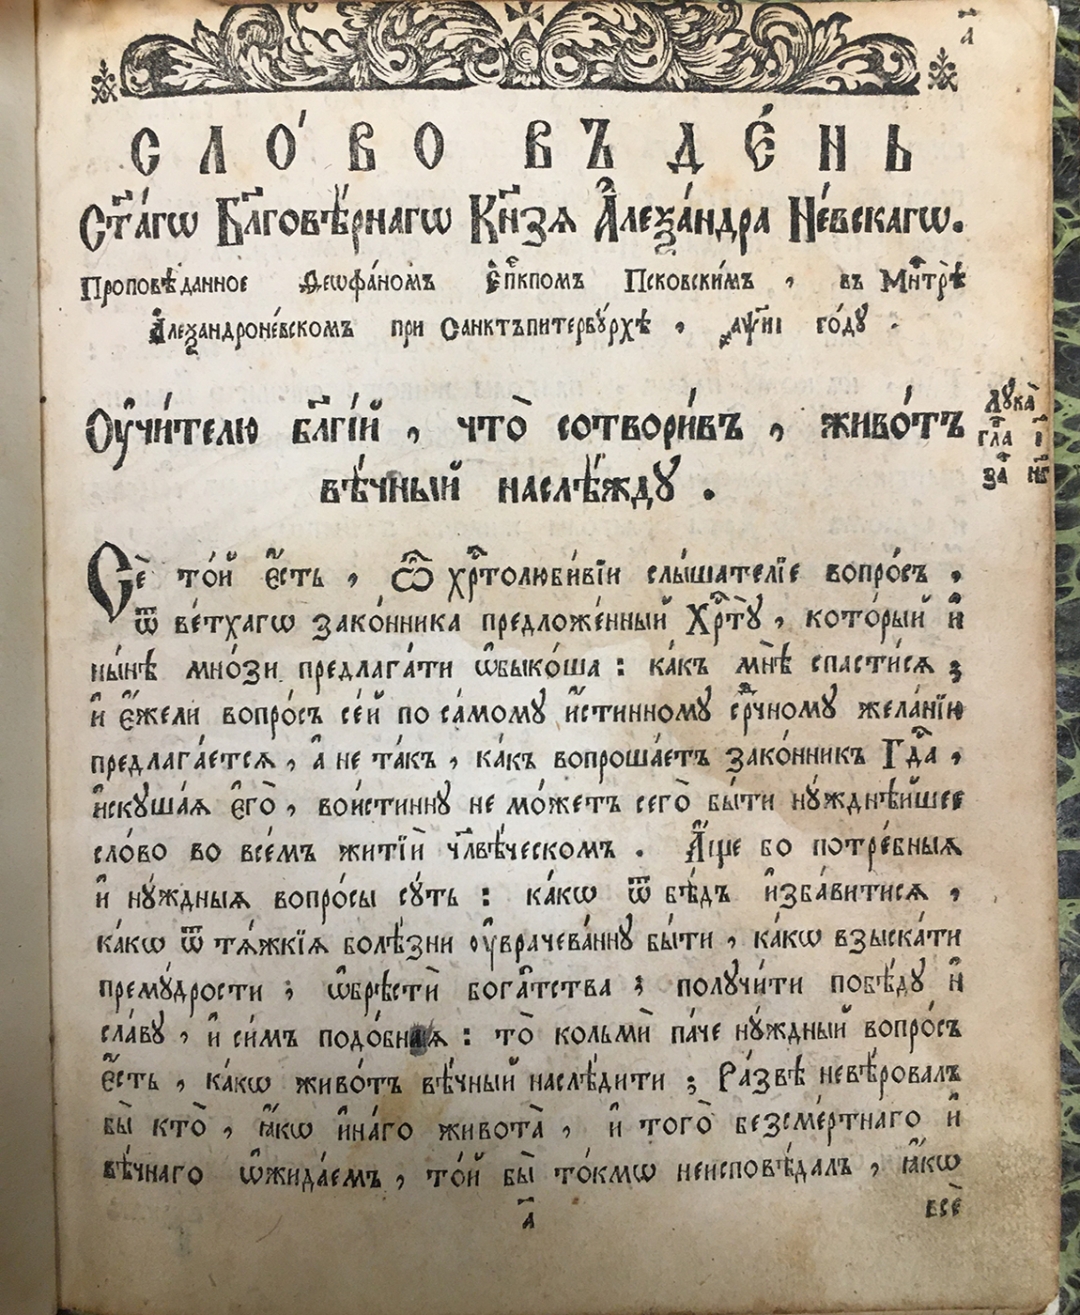 а҃
СЛО́ВО ВЪ ДЕ́НЬ
Ст҃а́гѡ Бл҃говѣ́рнагѡ Кн҃зѧ А҆леѯа́ндра Не́вскагѡ.
Проповѣ́данное Ѳеѡфа́номъ Е҆пⷭ҇кпомъ Псковскимъ , въ Мн҃трѣ̀
А҆леѯандроне́вскомъ при Санктъпитербу́рхѣ , ҂аѱи҃і го́дꙋ .
Оу҆чи́телю бл҃гі́й , что̀ сотвори́въ , живо́тъ
вѣ́чный наслѣ́ждꙋ .
Лꙋка̀
гла̀ і҃
за̀ н҃г
Сѐ то́й є҆́сть , Ѽ хрⷭ҇толюби́вїи слы́шателїе вопро́съ ,
ѿ ве́тхагѡ зако́нника предложе́нный Хрⷭ҇тꙋ̀ , кото́рый и҆
ны́нѣ мно́зи предлага́ти ѡ҆быко́ша : ка́къ мнѣ̀ спасти́сѧ ;
и҆ є҆́жели вопро́съ се́й по са́момꙋ и҆́стинномꙋ срⷣчномꙋ жела́нїю
предлага́етсѧ , а҆ не та́къ , ка́къ вопроша́етъ зако́нникъ Гдⷭ҇а ,
и҆скꙋша́ѧ є҆го̀ , вои́стиннꙋ не мо́жетъ сего̀ бы́ти нꙋ́жднѣйшее
сло́во во все́мъ житїѝ чл҃вѣ́ческомъ . А҆́ще бо потре́бныѧ
и҆ нꙋ́ждныѧ вопро́сы сꙋ́ть : ка́кѡ ѿ бѣ́дъ и҆зба́витисѧ ,
ка́кѡ ѿ тѧ́жкїѧ болѣ́зни оу҆врачева́ннꙋ бы́ти , ка́кѡ взыска́ти
премꙋ́дрости ; ѡ҆брѣстѝ бога́тства ; полꙋчи́ти побѣ́дꙋ и҆
сла́вꙋ , и҆ си́мъ подо́бнаѧ : то̀ кольмѝ па́че нꙋ́ждный вопро́съ
є҆́сть , ка́кѡ живо́тъ вѣ́чный наслѣ́дити ; Ра́звѣ невѣ́ровалъ
бы̀ кто̀ , ꙗ҆́кѡ и҆на́го живота̀ , и҆ того̀ безсме́ртнаго и҆
вѣ́чнаго ѡ҆жида́емъ , то́й бы̀ то́кмѡ неисповѣ́далъ , ꙗ҆́кѡ
а҃
всѐ